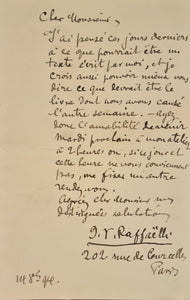 Cher Monsieur,
J'ai pensé ces jours derniers
à ce que pourrait être un
texte écrit par moi, et je
crois aussi pouvoir mieux vous
dire ce que devrait être le
livre dont nous avons causé
l'autre semaine. Ayez
donc l'amabilité de venir
mardi prochain à mon atelier
à 2 heures ou, si ce jour et
cette heure ne vous conviennent
pas, me fixer un autre
rendez vous.
Agréez, cher Monsieur mes
distinguées salutations
J. F. Raffaëlli
202 rue de Courcelles
Paris